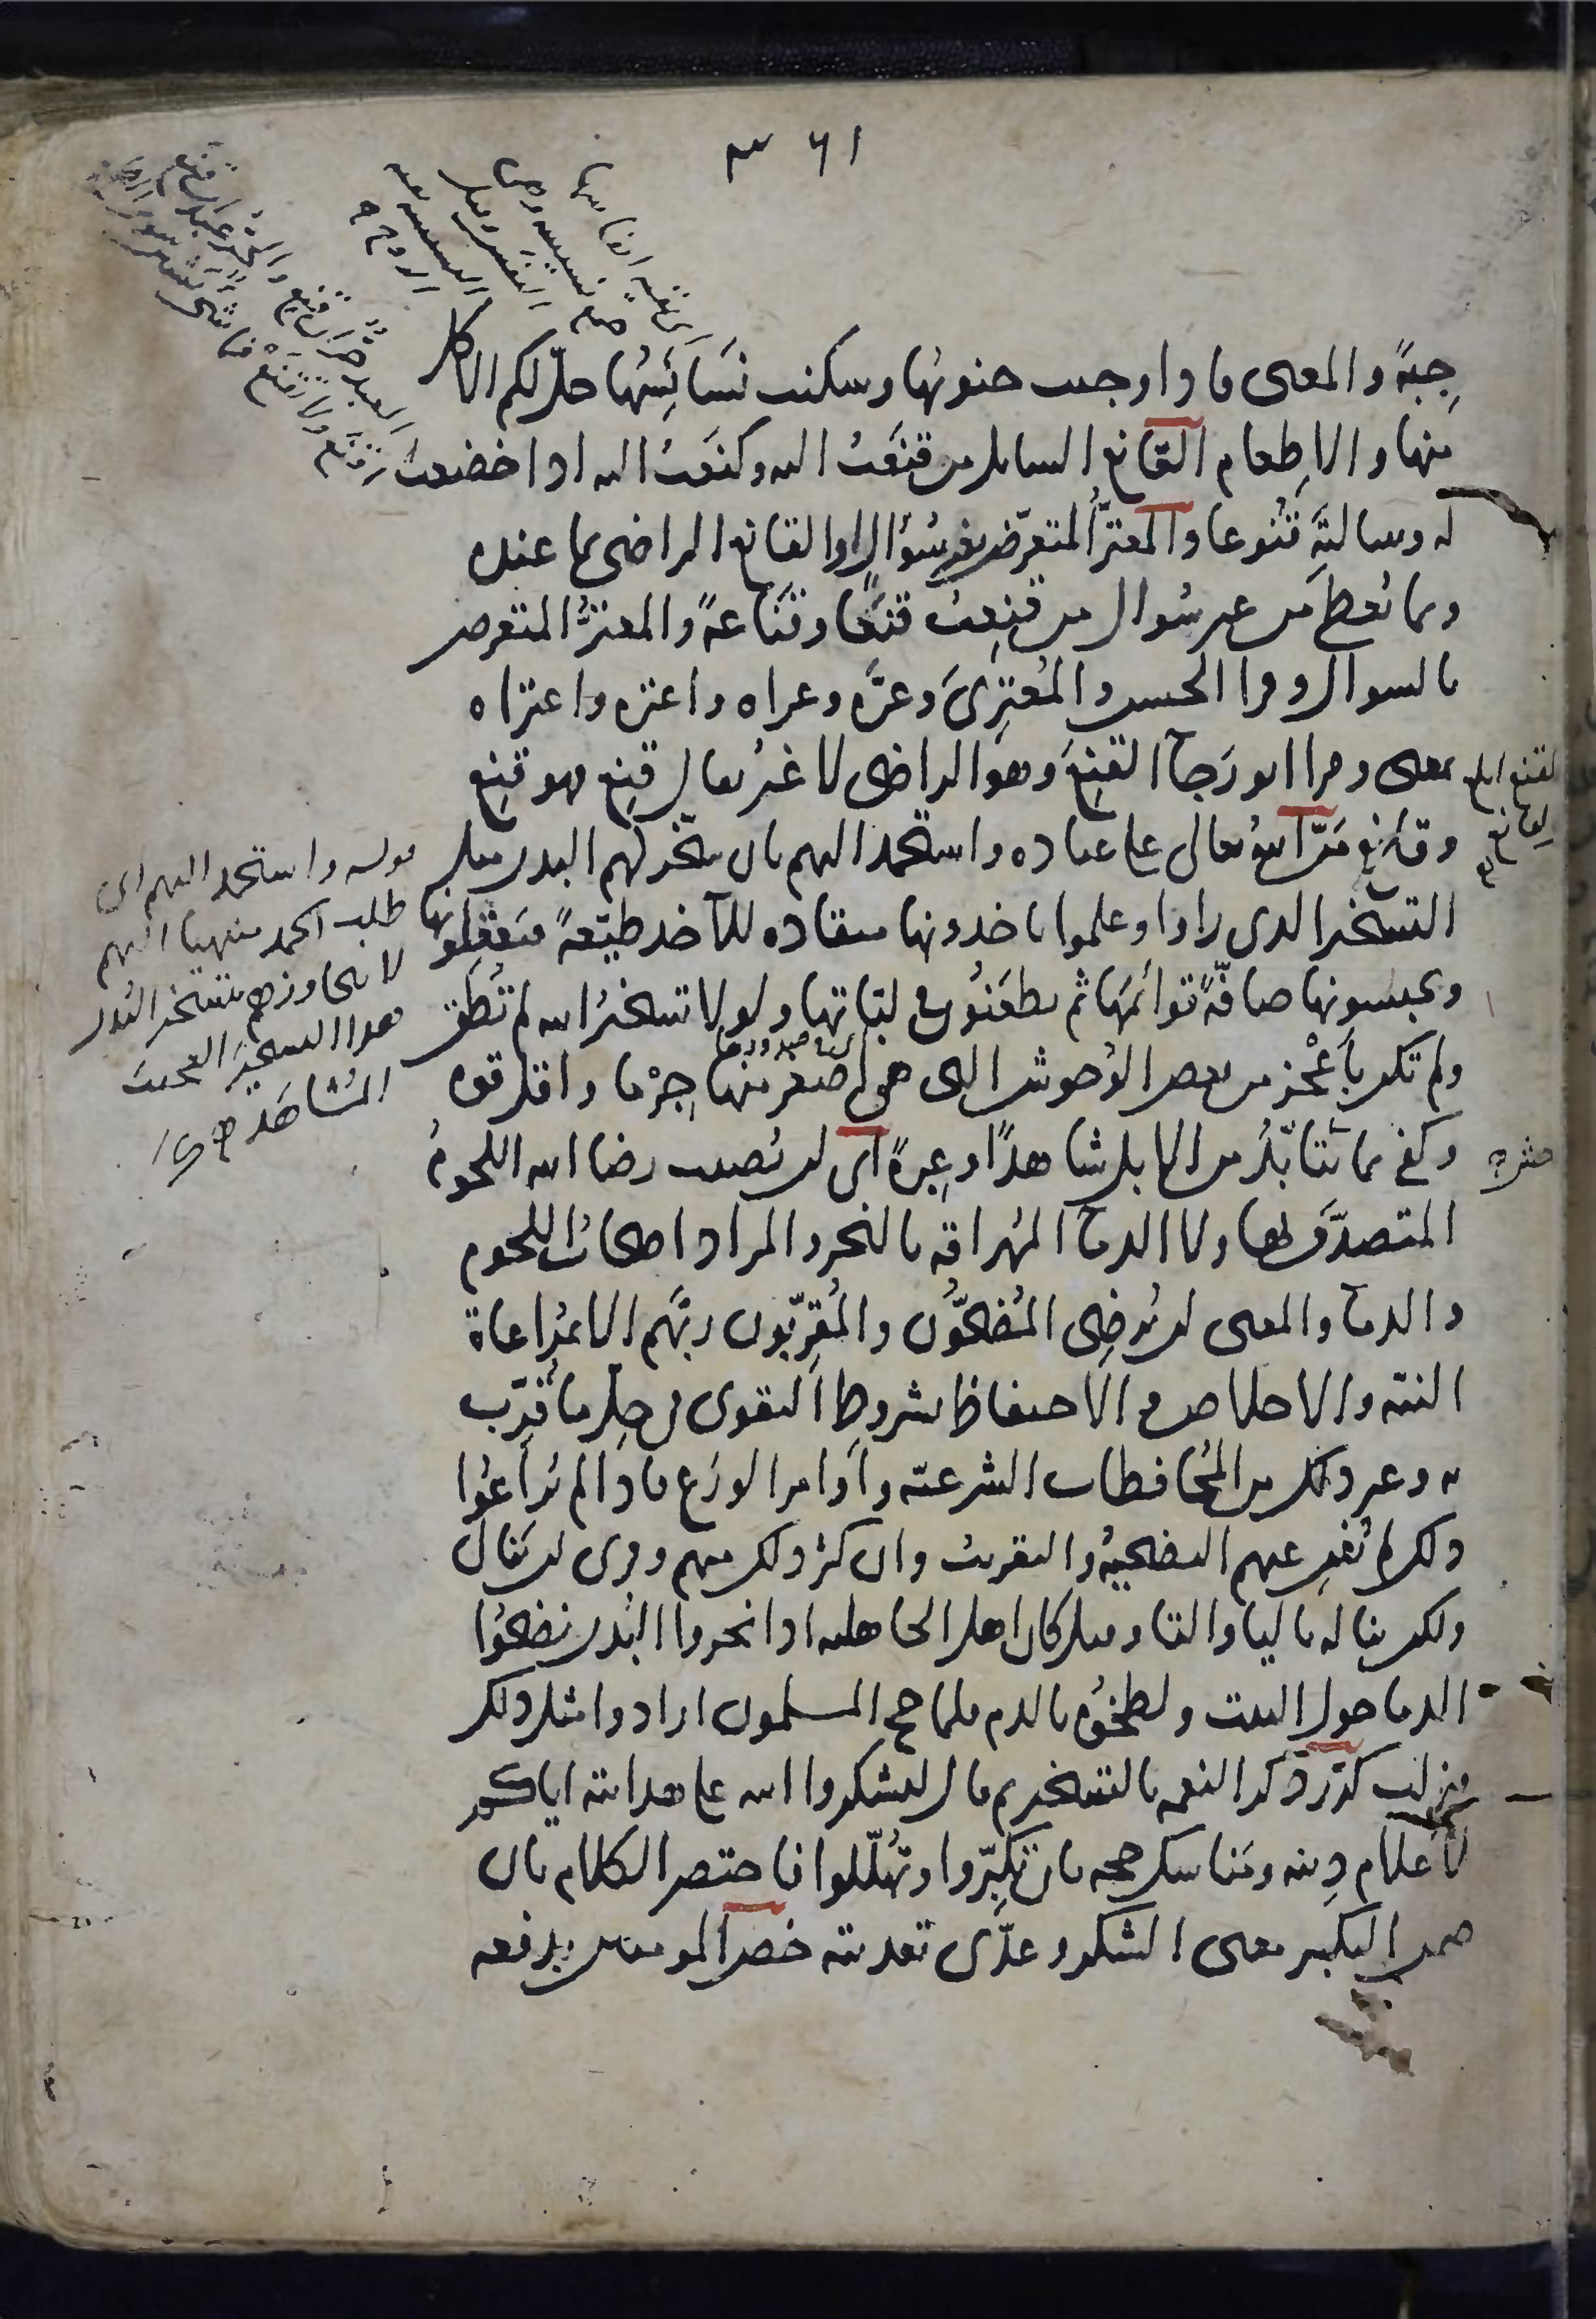 ٦١
جمع نسيس وهى
النفس وقيل
النسيس بقية
الروح
العبد حر ان قنع والحر عبد ان قنع
فاقنع ولا تقنع فما شى يشين سوى الطمع
جِبَةً والمعنى فاذا وجبت جنوبُها وسكنت نَسَائِسُها حلّ لكم الاكل
منها والاِطعام القانع السايل من قنَعَتُ اليه وكنَعَتُ اليه اذا خضعت
له وسالتَه قُنُوعا والمعترُّ المتعرّض بغير سُؤالٍ او القانع الراضى بما عنده
وبما يُعطَى من غير سُوال من قنِعتُ قنَعًا وقَنَاعةً والمعترُّ المتعرض
بالسوال وقرا الحسن والمُعتِرىَ وعرّه وعراه واعتره واعتراه
بمعنى وقرا ابو رَجاء القنِعَ وهو الراضى لا غيرُ يقال قنِع فهو قنِع
القنع ابلغ
من القانع
وقانِع مَنَّ اللهُ تعالى على عباده واستحمد اليهم بان سخّر لهم البدن مثل
التسخير الذى راَوا وعلموا ياخذونها منقاده للآخذ طيّعةً فيَعقِلونها
ويحبسونها صافّةً قوائمُها ثم يطعَنُون فى لبّاتها ولولا تسخيرُ الله لم تُطَق
ولم تكن باَعْجَز من بعض الوُحوش التى هى اَصغَر منها جِرْما واقل قوه
وكفى بما يَتَاَبَّدُ من الابل شاهدًا وعِبرةً اى لن يُصيب رضا الله اللحومُ
المتصدَّق بها ولا الدماءُ المُهراقه بالنحر والمراد اصحابُ اللحوم
والدماءِ والمعنى لن يُرضِى المُضحّون والمُقرّبون ربَّهم الا بمُراعاة
النيّه والاخلاص والاحتفاظ بشروطِ التقوى فى حِلّ ما قُرّب
به وغير ذلك من المُحافظات الشرعيّه وأوامر الورَع فاذا لم يُراعُوا
ذلك لم تُغنِ عنهم التضحيةُ والتقريبُ وان كثر ذلك منهم وقرى لن تنال
ولكن يناله بالياء والتاء وقيل كان اهل الجاهليه اذا نحروا البُدن نضحُوا
الدماءَ حول البيت ولطخُوه بالدم فلما حج المسلمون ارادوا مثل ذلك
فنزلت كرّر ذكر النعمه بالتسخير ثم قال لتشكروا الله على هدايته اياكم
لاَعلام دِينه ومَناسك حجه بان تُكبِّروا وتُهلّلوا فاختصر الكلام بان
ضمن التكبير معنى الشكر وعدّى تعديته خصّ المومنين بدفعه
قوله واستحمد اليهم اى
طلب الحمد منهيا اليهم
لا يتجاوزهم بتسخير البُدن
هذا التسخيرَ العجيبَ
المُشاهَد